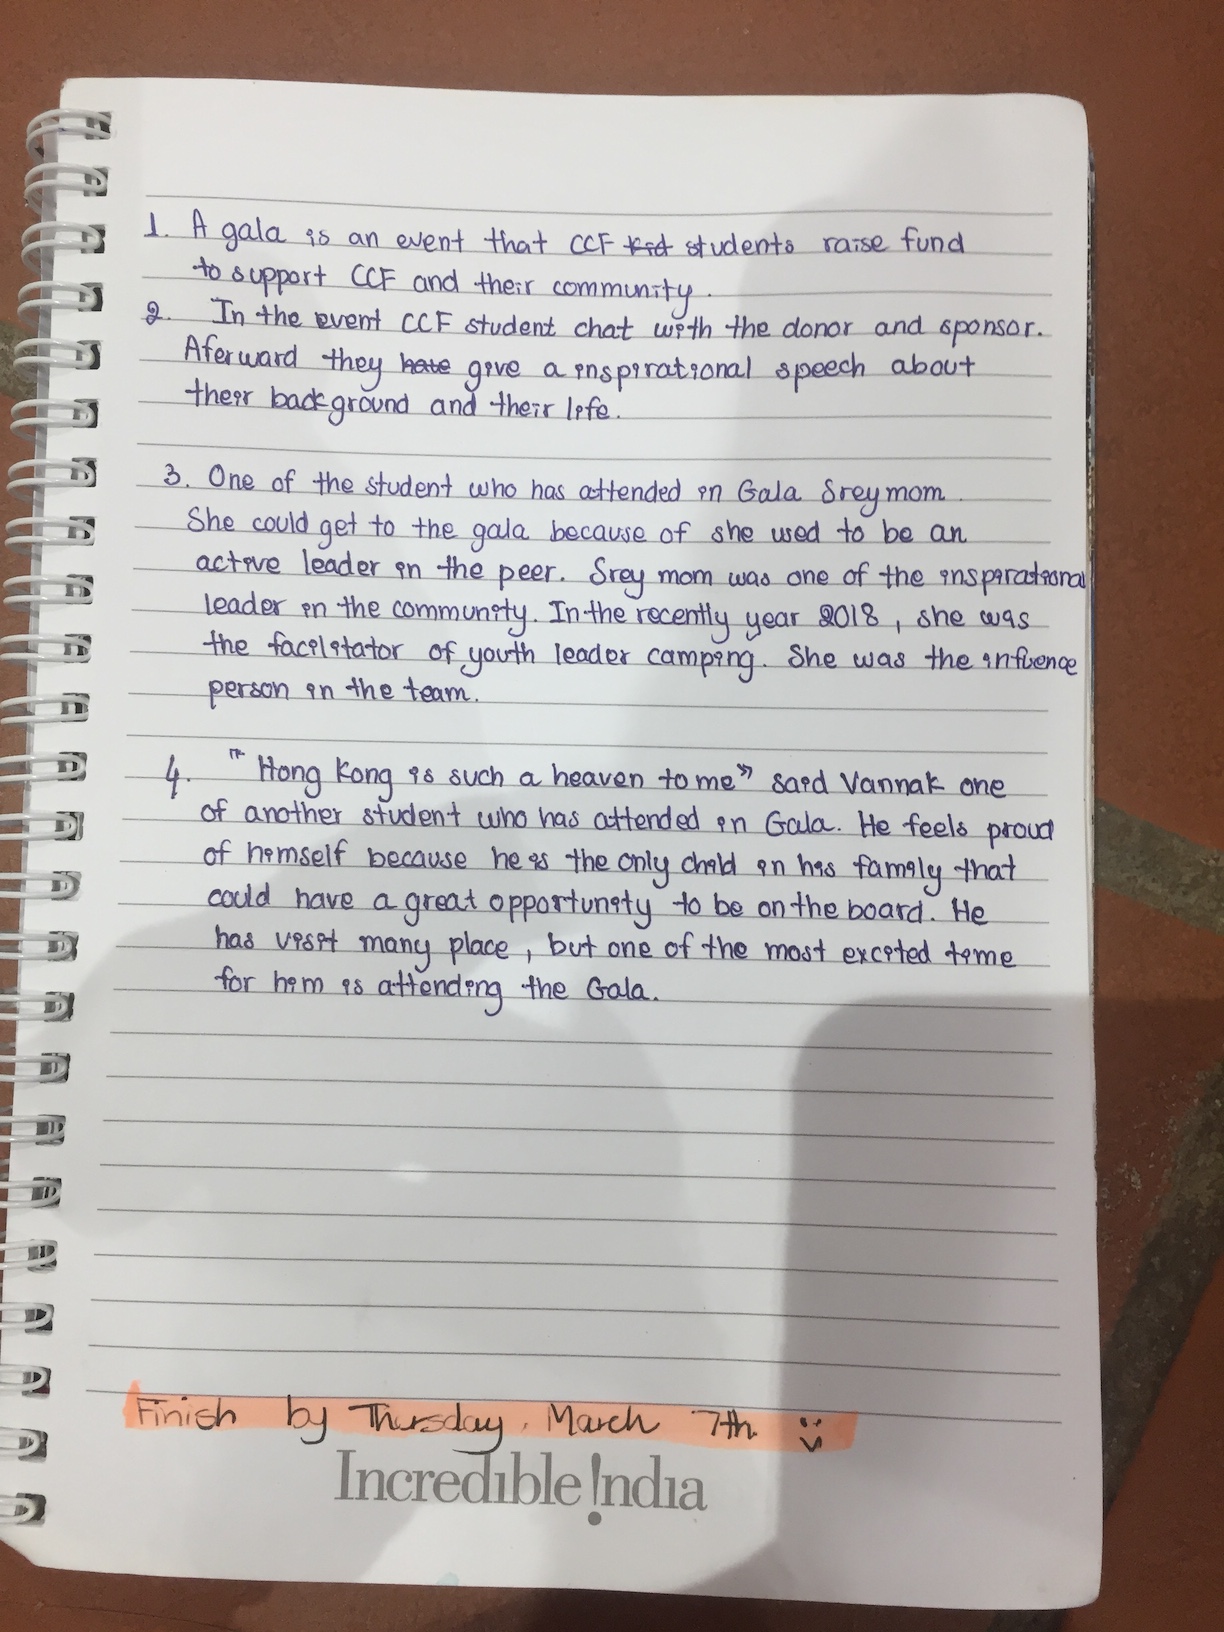 1. A gala is an event that CCF Kid students raise fund
to support CCF and their community.
2. In the event CCF student chat with the donor and sponsor.
Aferward they hate give a inspirational speech about
their background and their life.
3. One of the student who has attended in Gala Sreymom.
She could get to the gala because of she used to be an
active leader in the peer. Srey mom was one of the inspirational
leader in the community. In the recently year 2018, she was
the facilitator of youth leader camping. She was the infuence
person in the team.
4. "Hong Kong is such a heaven to me" said Vannak one
of another student who has attended in Gala. He feels proud
of himself because he is the only child in his family that
could have a great opportunity to be on the board. He
has visit many place, but one of the most excited time
for him is attending the Gala.
Finish by Thursday, March 7th
Incredible !ndia